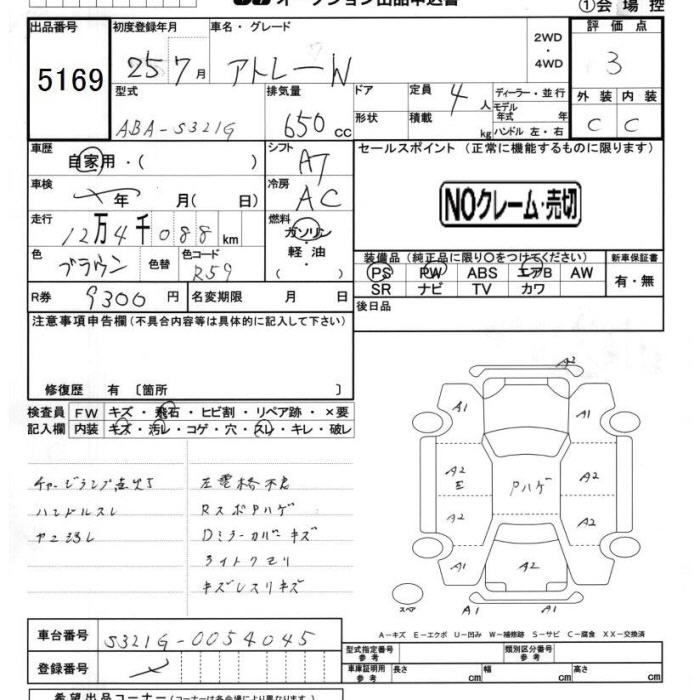 オークション出品申込書
①会場控
出品番号 初度登録年月 車名・グレード 評価点
5169 25 7月 アトレーW 2WD・4WD 3
型式 排気量 ドア 定員 4人 ディーラー・並行 外装 内装
ABA-S321G 650cc 形状 積載 kg モデル年式 年 ハンドル 左・右 C C
車歴 自家用・( ) シフト AT セールスポイント (正常に機能するものに限ります)
車検 年 月( 日) 冷房 AC NOクレーム・売切
走行 12万4千088km 燃料 ガソリン・軽油・( )
色 ブラウン 色替 色コード R59
装備品 (純正品に限り○をつけてください) 新車保証書
PS PW ABS エアB AW 有・無
SR ナビ TV カワ
R券 9300円 名変期限 月 日 後日品
注意事項申告欄 (不具合内容等は具体的に記入して下さい)
修復歴 有 〔箇所 〕
検査員 FW キズ・飛石・ヒビ割・リペア跡・×要
記入欄 内装 キズ・汚レ・コゲ・穴・スレ・キレ・破レ
チャージランプ点灯
ハンドルスレ
RスポPハゲ
Dミラーカバーキズ
ライトクモリ
A2
A1 A1
A2 E Pハゲ A2
A2 A2
A1 A2 A1
スペア A1 A1
A-キズ E-エクボ U-凹み W-補修跡 S-サビ C-腐食 XX-交換済
車台番号 S321G-0054045
登録番号
型式指定番号 参考 類別区分番号 参考
車庫証明用 参考 長さ cm 幅 cm 高さ cm
希望出品コーナー (コーナーは各会場により異なります)